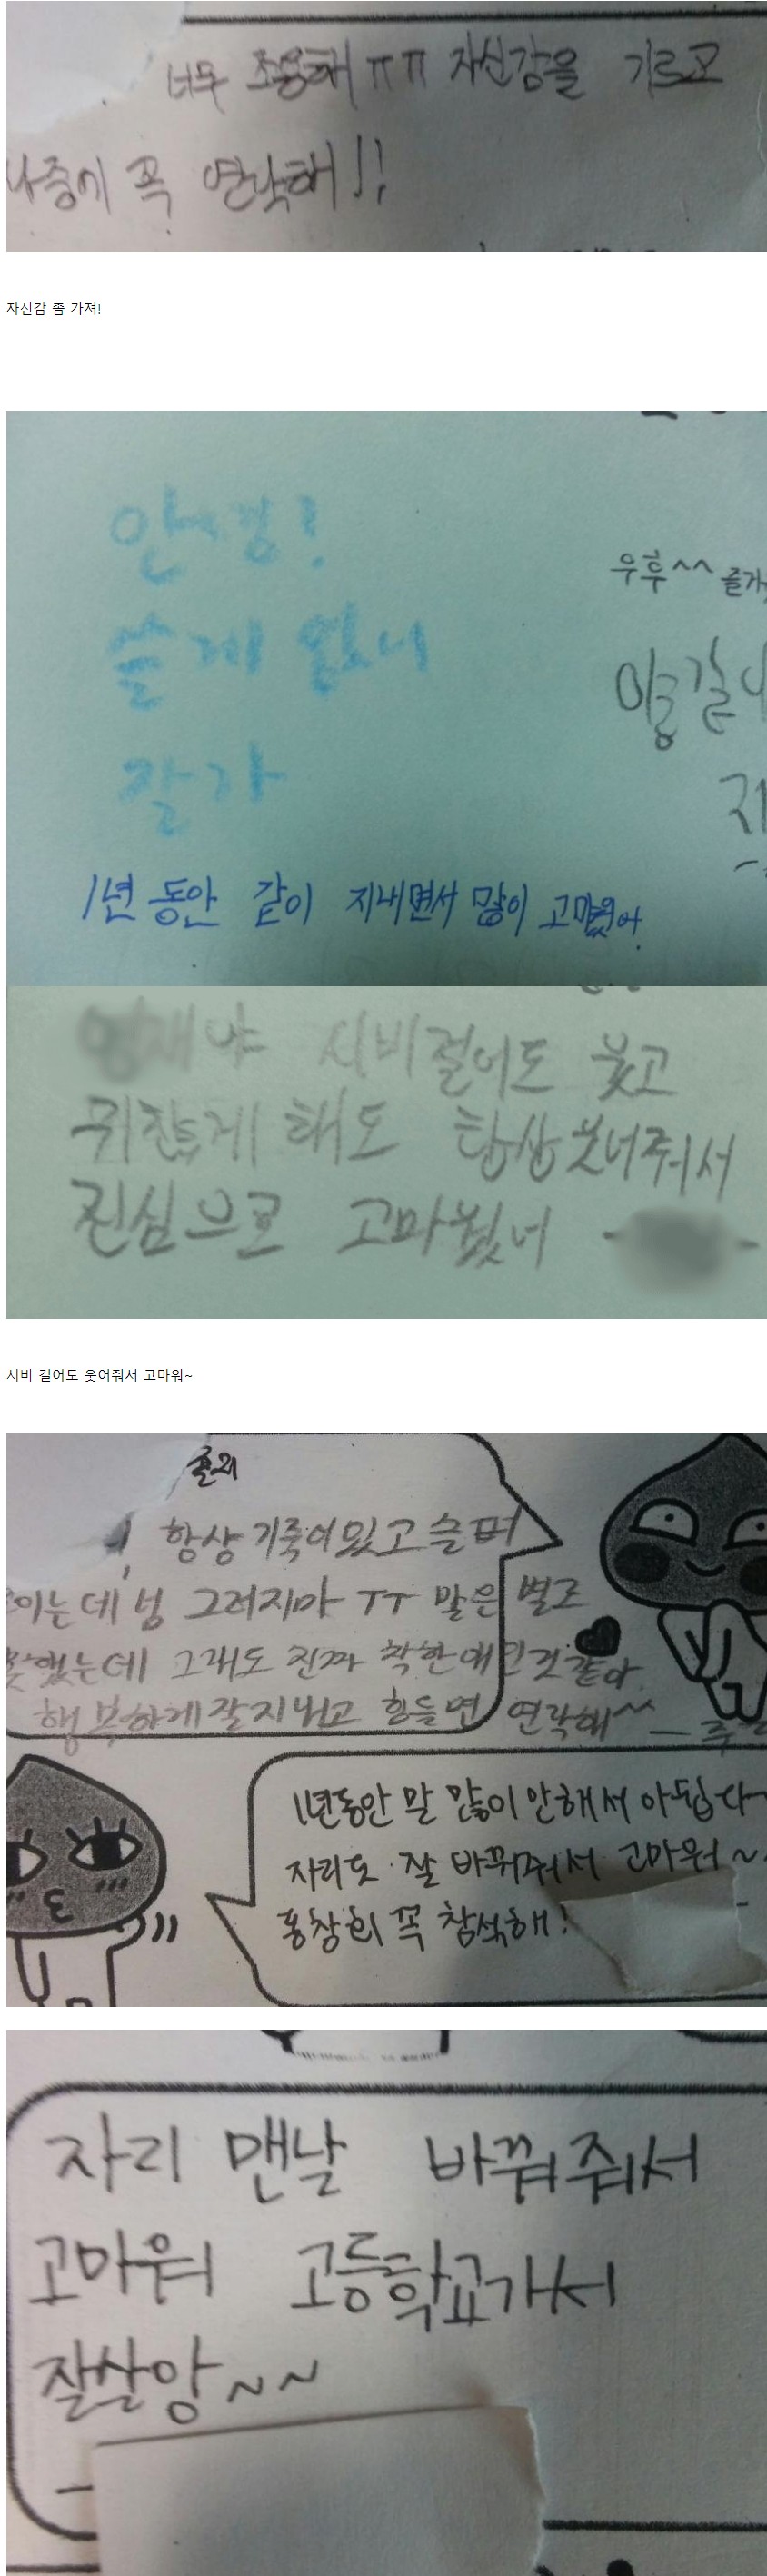 너무 조용해 ㅠㅠ 자신감을 기르고
나중에 꼭 연락해!!
자신감 좀 가져!
안녕!
쓸게 없으니
잘가
우후^^ 즐거
1년 동안 같이 지내면서 많이 고마웠어
야 시비걸어도 웃고
귀찮게 해도 항상 웃너줘서
진심으로 고마웠너
시비 걸어도 웃어줘서 고마워~
항상 기죽어있고 슬퍼
이는데 넝 그러지마 ㅠㅠ 말은 별로
못했는데 그래도 진짜 착한애인것같아
행복하게 잘지내고 힘들면 연락해^^
1년동안 말 많이 안해서 아쉽다~
자리도 잘 바꿔줘서 고마워~
홍창회 꼭 참석해!
자리 맨날 바꿔줘서
고마워 고등학교가서
잘살앙~~